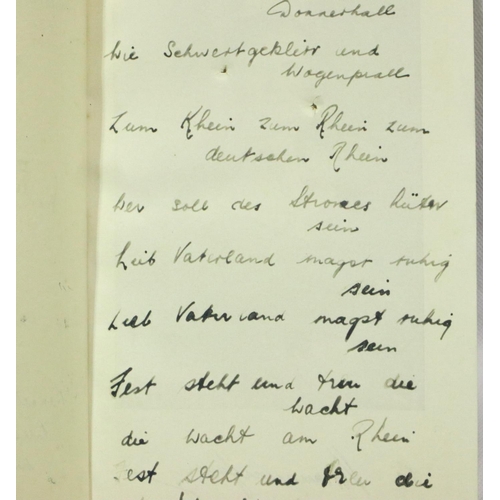 Donnerhall
Wie Schwertgeklirr und
Wogenprall
Zum Rhein zum Rhein zum
deutschen Rhein
Wer soll des Stromes Hüter
sein
Lieb Vaterland magst ruhig
sein
Lieb Vaterland magst ruhig
sein
Fest steht und treu die
Wacht
die Wacht am Rhein
Fest steht und treu die